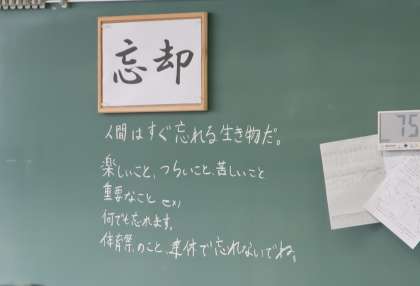 忘却
人間はすぐ忘れる生き物だ。
楽しいこと、つらいこと、苦しいこと
重要なこと etc
何でも忘れます。
体育祭のこと、連休で忘れないでね。
75